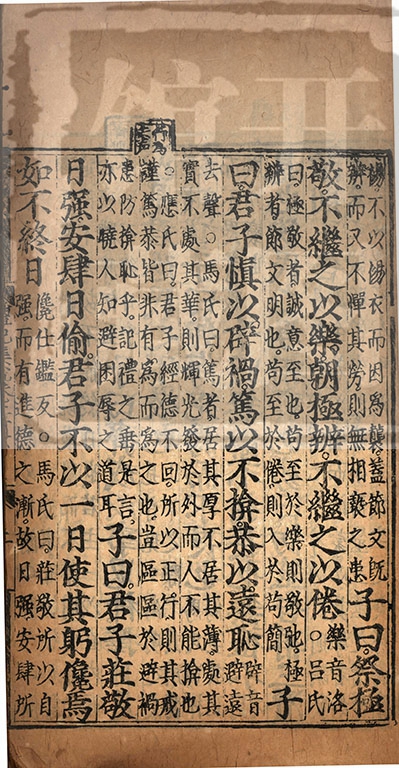 行為
去聲
裼不以裼衣而因爲襲蓋節文旣
辨而又不憚其勞則無相褻之患
子曰祭極
敬不繼之以樂朝極辨不繼之以倦
○樂音洛
呂氏
曰極敬者誠意至也苟至於樂則敬弛極
辨者節文明也苟至於倦則入於苟簡
子
曰君子愼以辟禍篤以不揜恭以遠恥
辟音
避遠
去聲○馬氏曰篤者居其厚不居其薄處其
實不處其華則輝光發於外而人不能揜也
○應氏曰君子經德不回所以正行則其戒
謹篤恭皆非有爲而爲之也豈區區於避禍
患防揜恥乎記禮之垂是言
亦以曉人知避困辱之道耳
子曰君子莊敬
日强安肆日偷君子不以一日使其躬儳焉
如不終日
儳仕鑑反○馬氏曰莊敬所以自
强而有進德之漸故日强安肆所